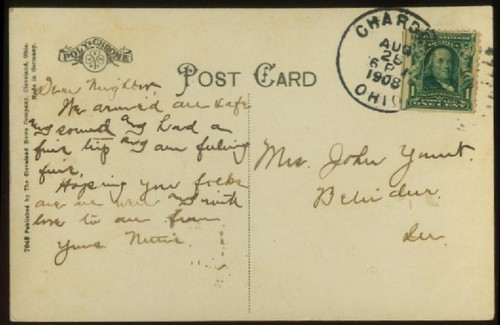 7048 Published by The Cleveland News Company, Cleveland, Ohio.
Made in Germany.
POLY-CHROME
POST CARD
CHARDON
AUG
1908
OHIO
1
Dear Neighbor
We arrived all safe
and sound and had a
fine trip and am feeling
fine.
Hoping you folks
are all well and with
love to all from
Yours Nettie
Mrs. John